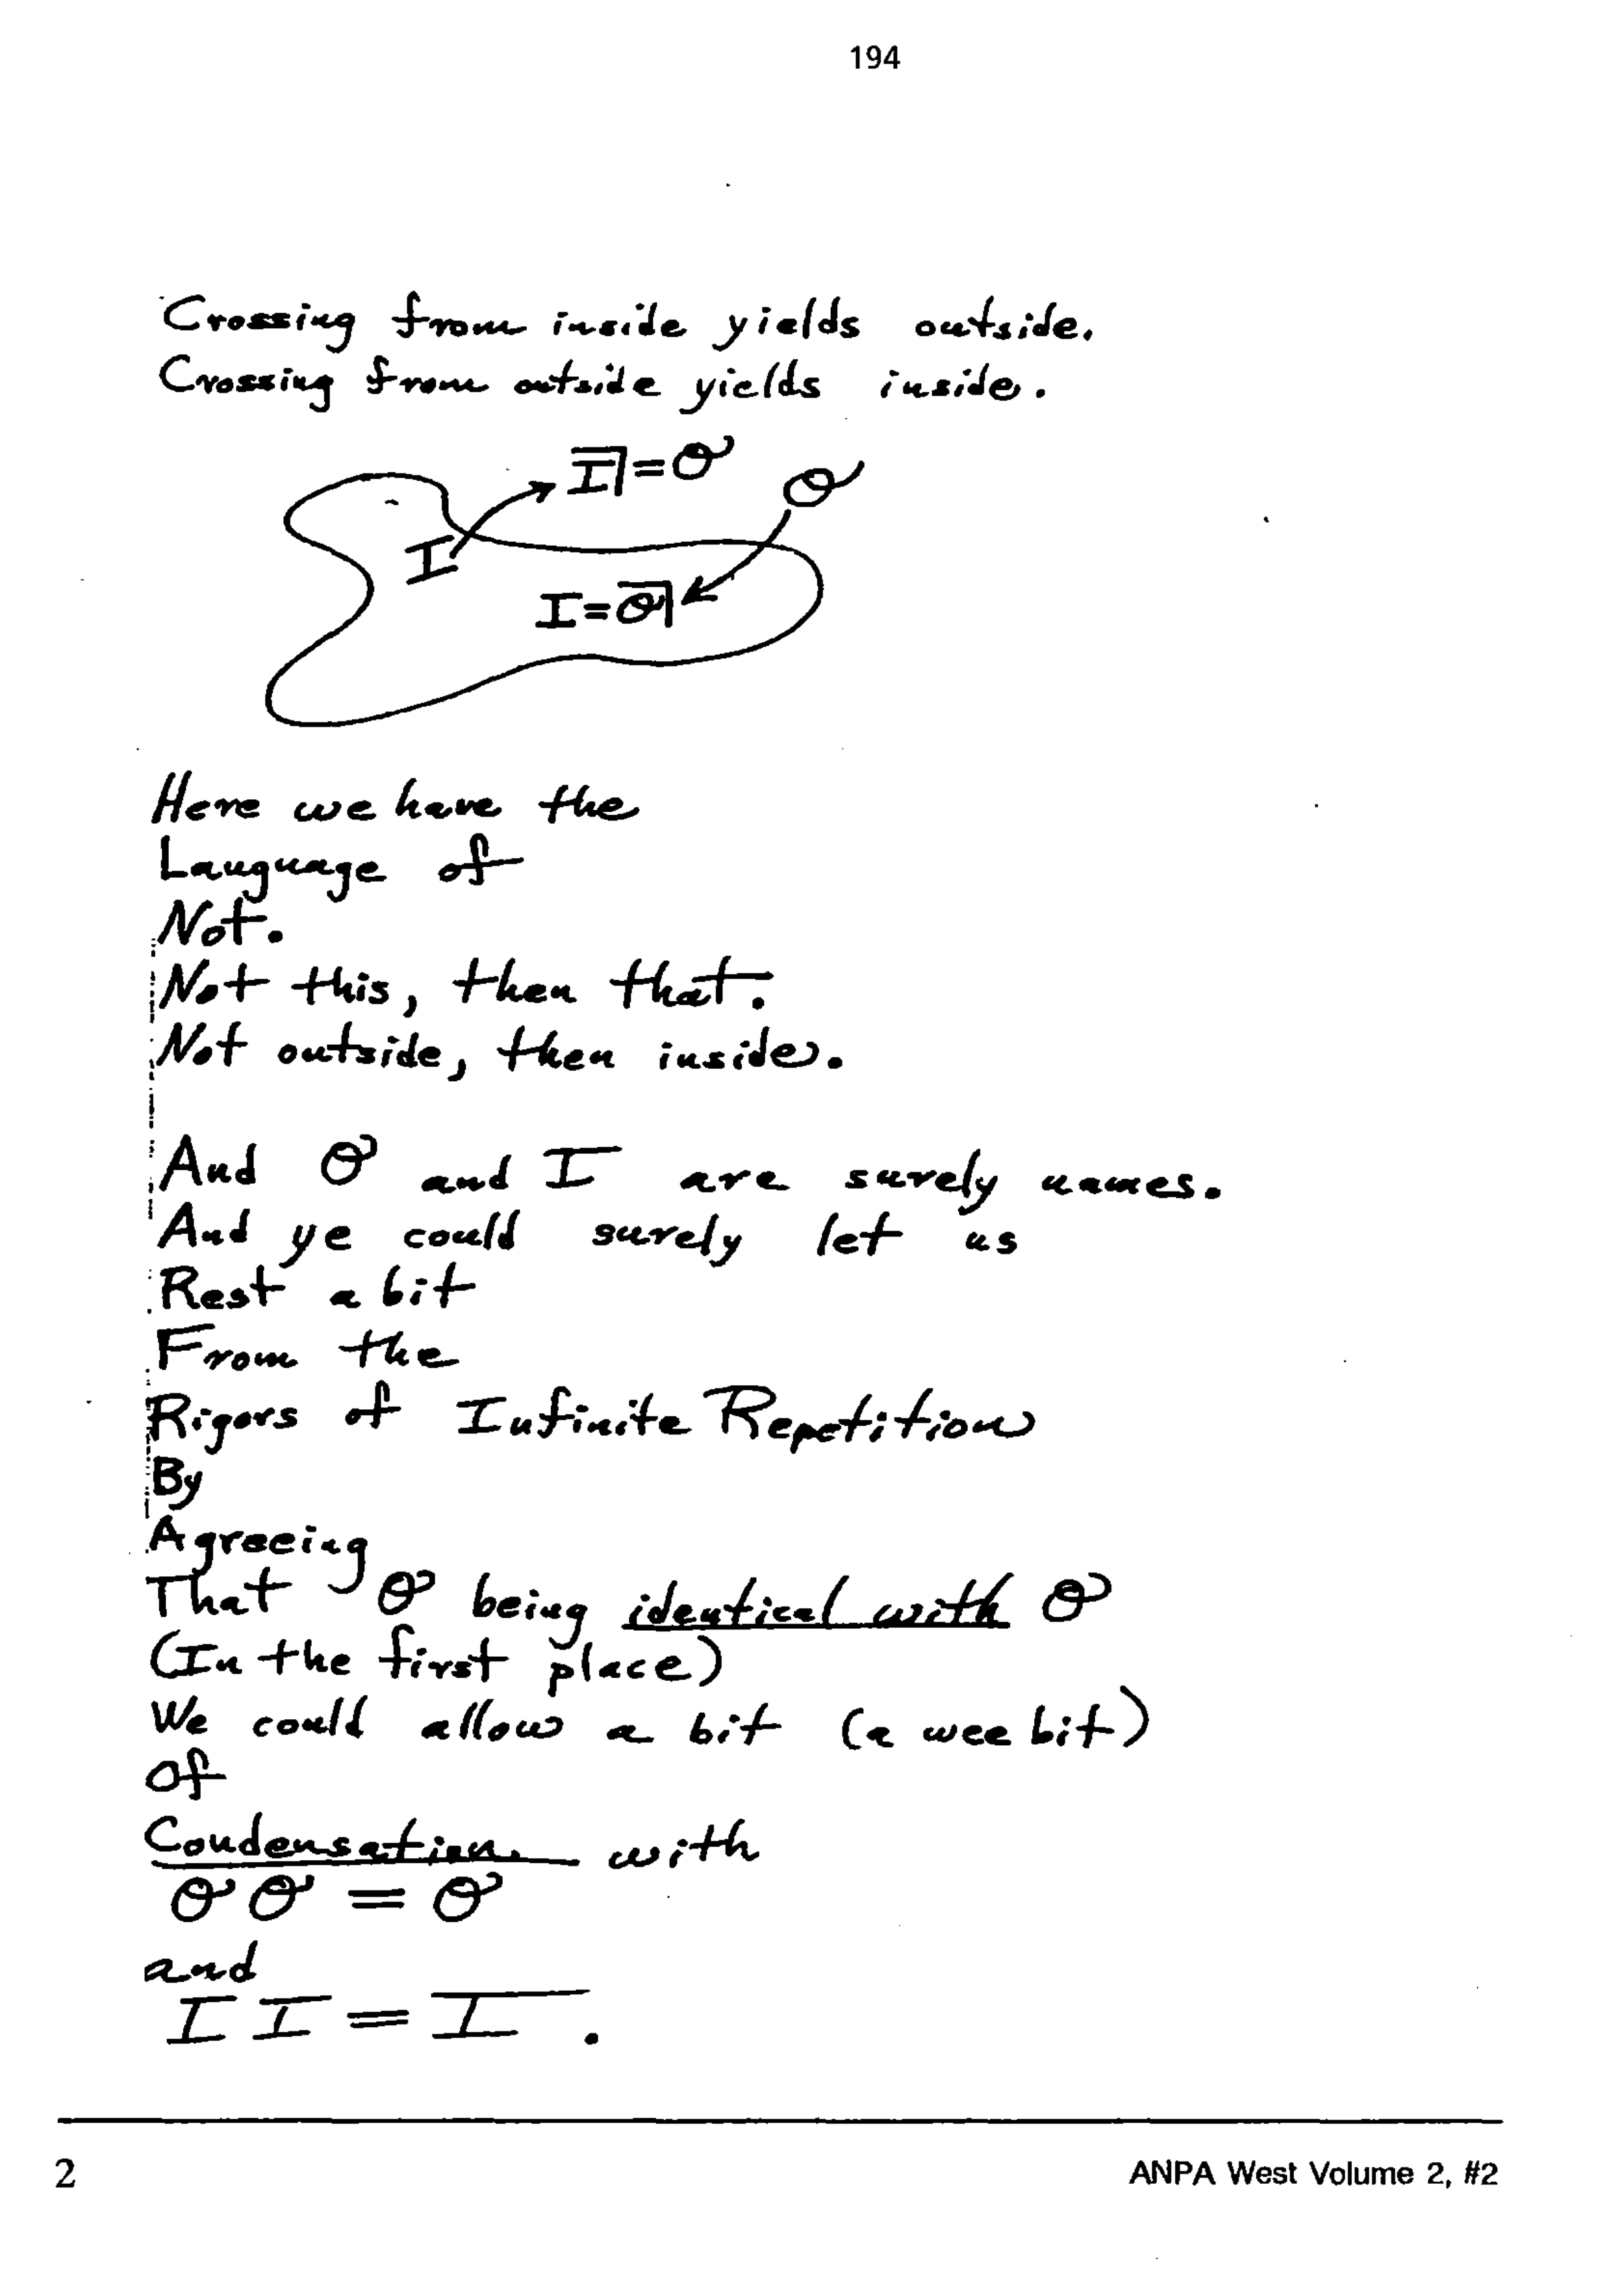 194
Crossing from inside yields outside.
Crossing from outside yields inside.
I̅| = O
O
I
I = O̅|
Here we have the
Language of
Not.
Not this, then that.
Not outside, then inside.
And O and I are surely names.
And ye could surely let us
Rest a bit
From the
Rigors of Infinite Repetition
By
Agreeing
That O being identical with O
(In the first place)
We could allow a bit (a wee bit)
of
Condensation with
O O = O
and
I I = I .
2
ANPA West Volume 2, #2